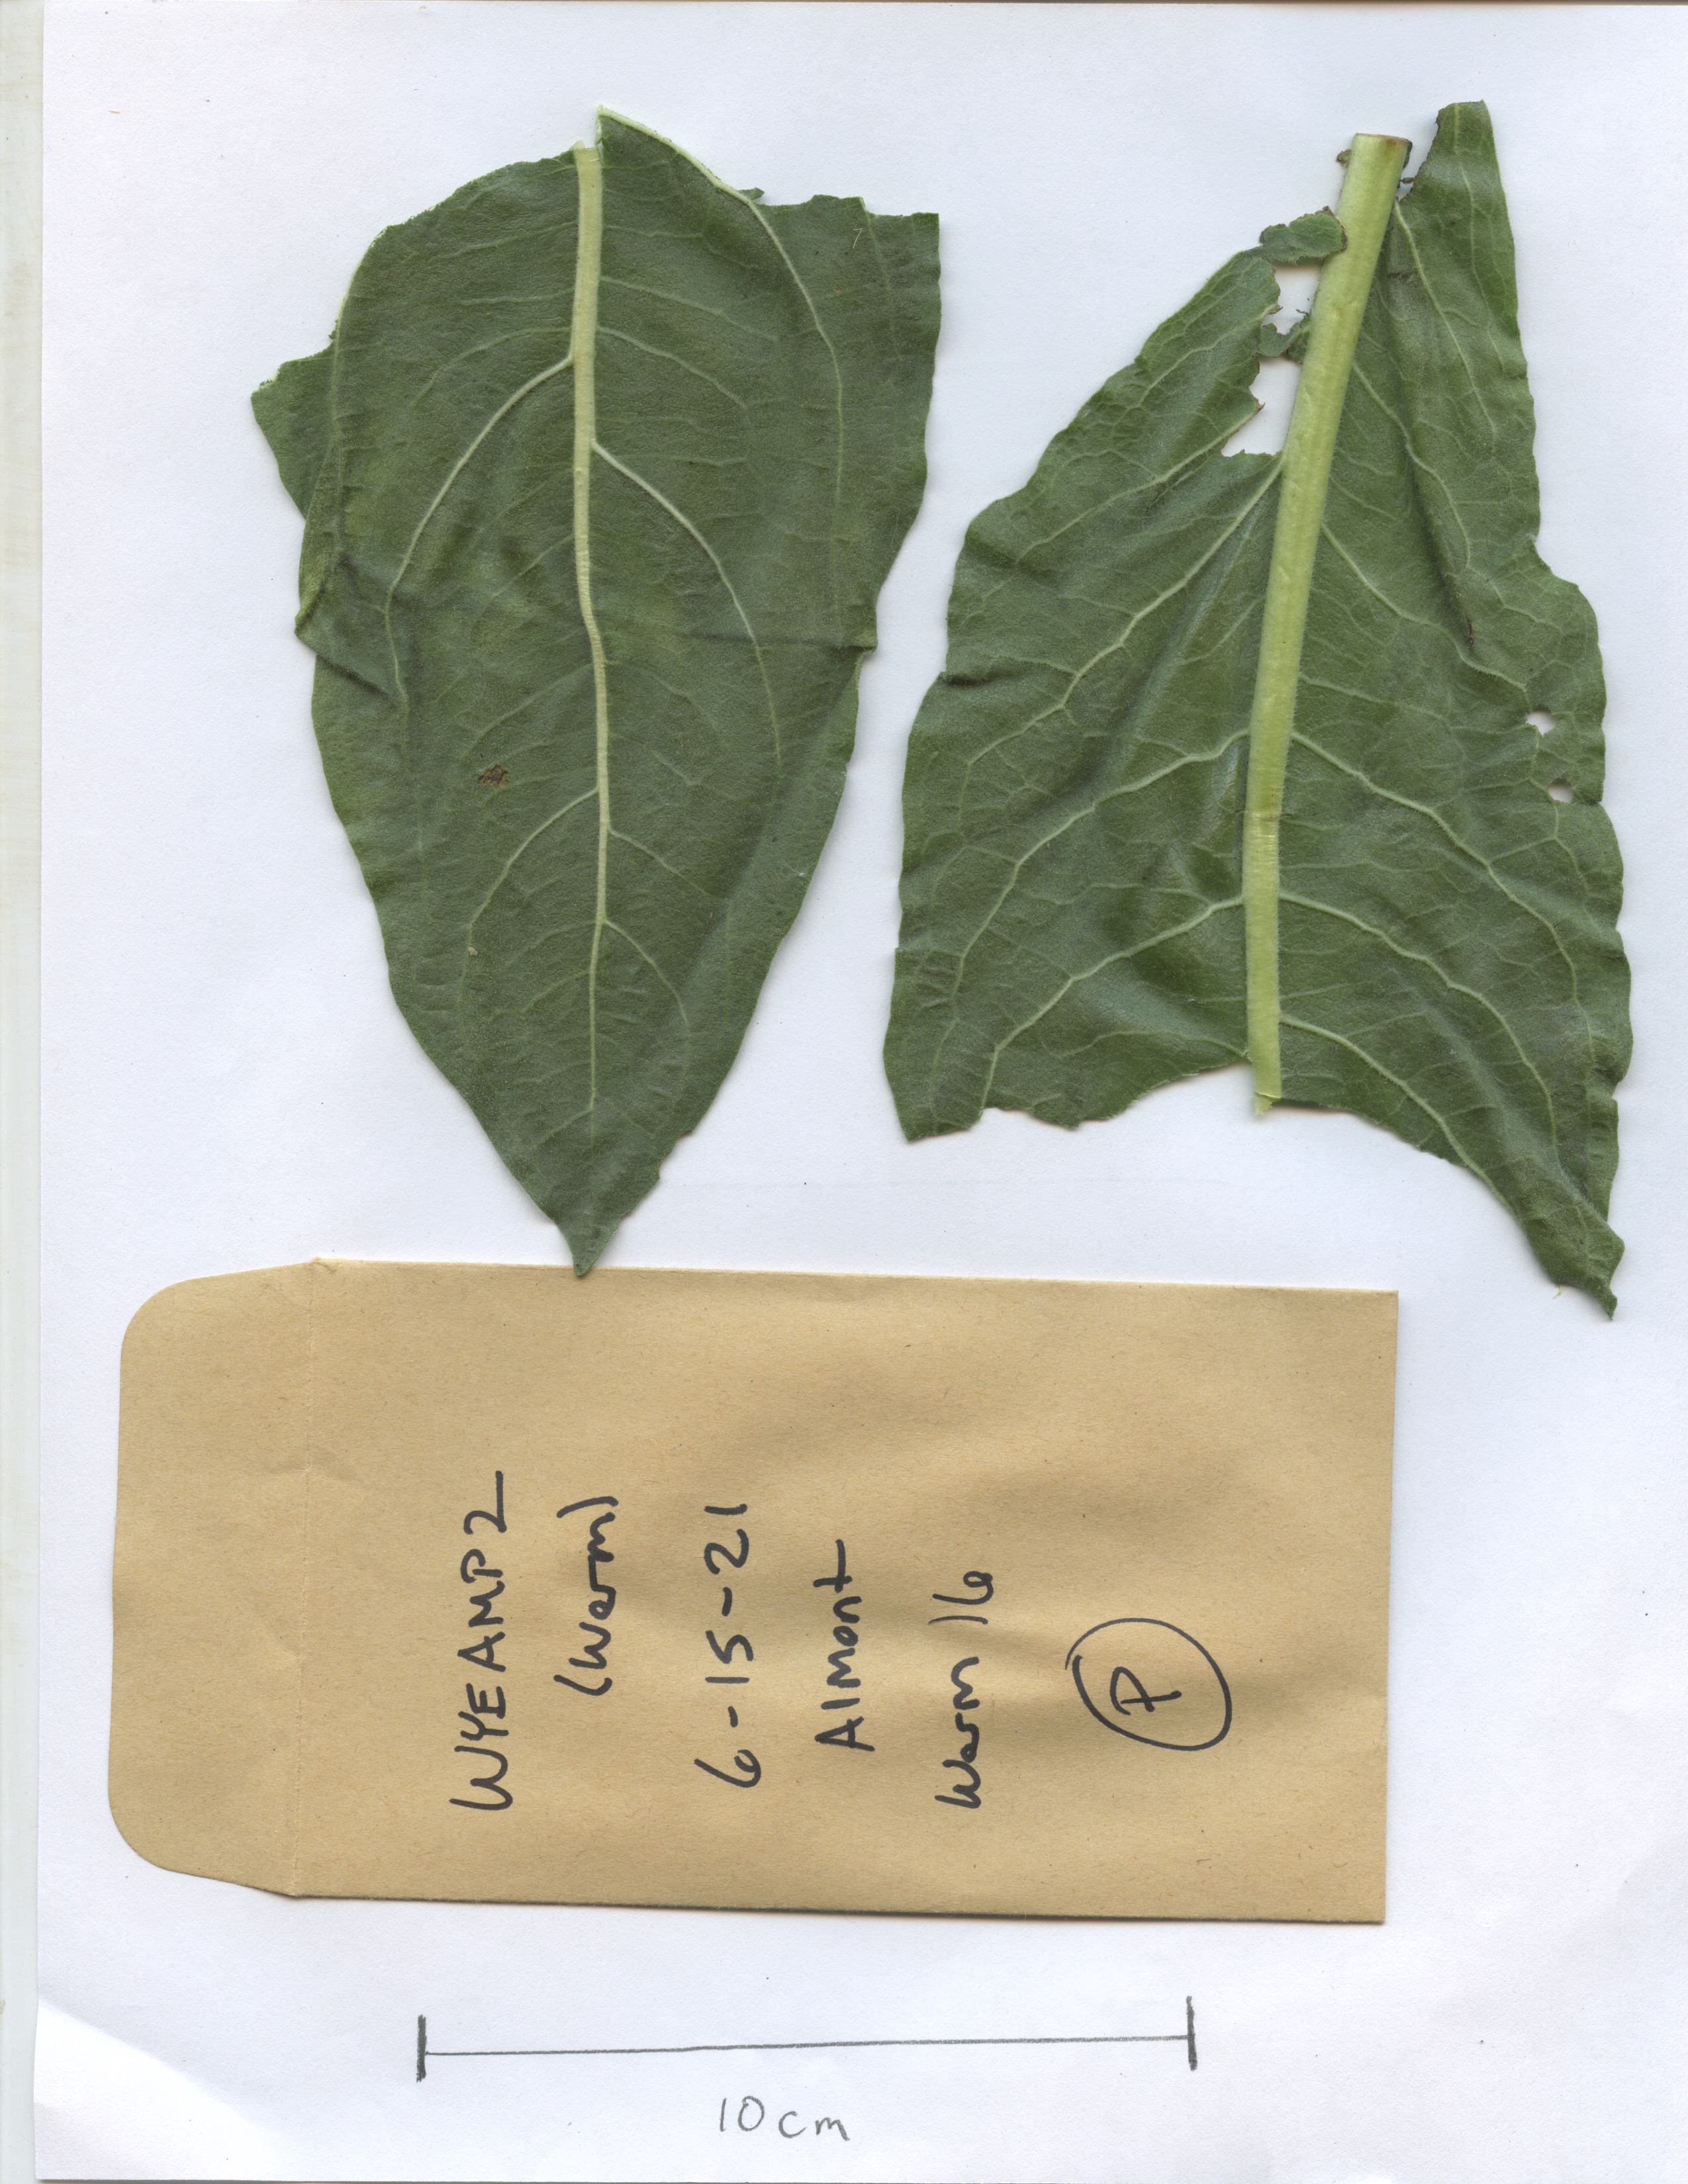 WYEAMP2
(Warm)
6-15-21
Almont
Warm 16
P
10cm